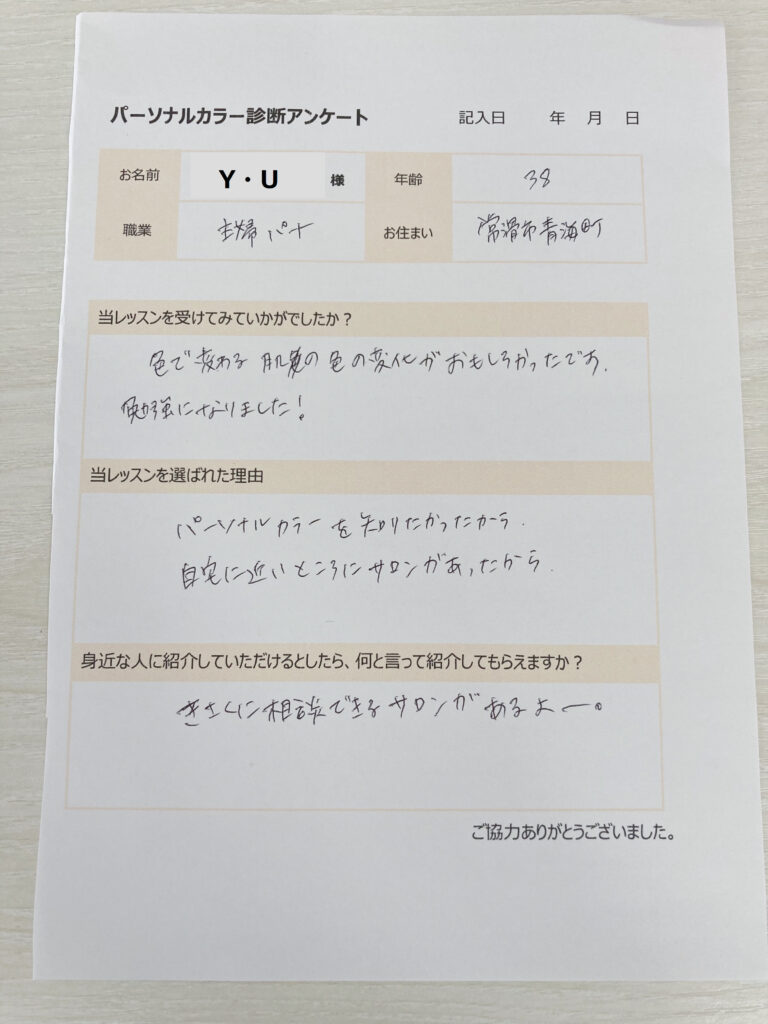 パーソナルカラー診断アンケート 記入日 年 月 日
お名前 Y・U 様 年齢 38
職業 主婦 パート お住まい 常滑市青海町
当レッスンを受けてみていかがでしたか？
色で変わる 肌の色の変化がおもしろかったです.
勉強になりました!
当レッスンを選ばれた理由
パーソナルカラーを知りたかったから.
自宅に近いところにサロンがあったから.
身近な人に紹介していただけるとしたら、何と言って紹介してもらえますか？
きさくに相談できるサロンがあるよー。
ご協力ありがとうございました。